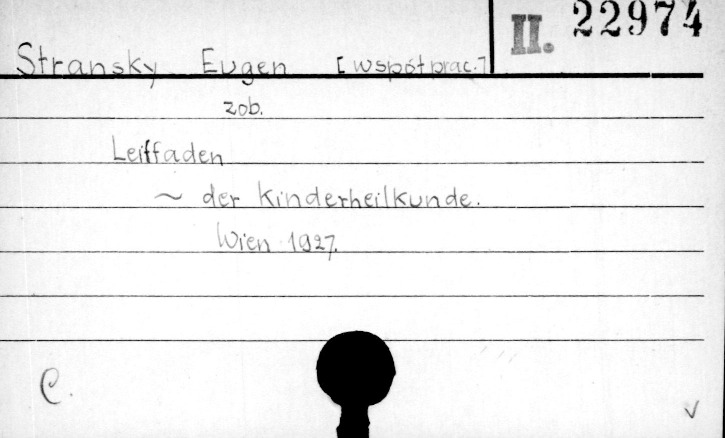 II. 22974
Stransky Eugen [współprac.]
zob.
Leitfaden
~ der Kinderheilkunde.
Wien 1927.
C.